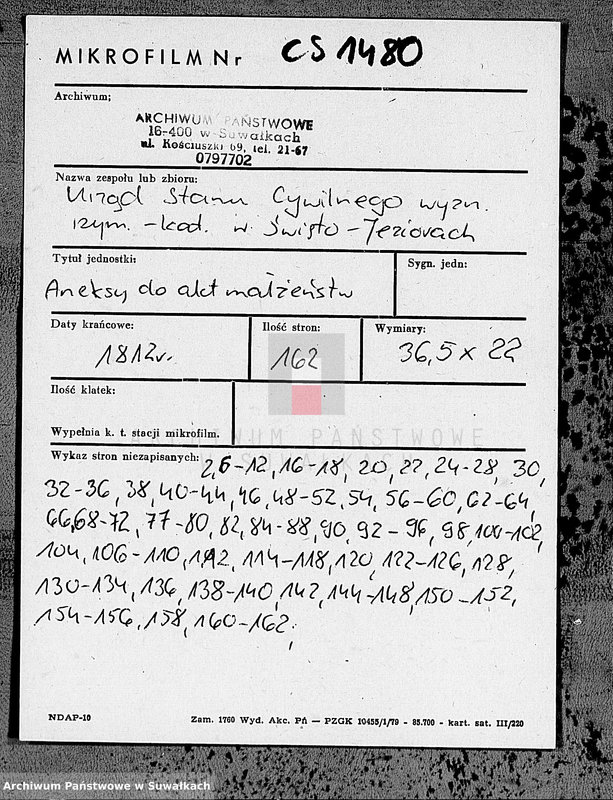 MIKROFILM Nr CS 1480
Archiwum;
ARCHIWUM PAŃSTWOWE
16-400 w Suwałkach
ul. Kościuszki 69, tel. 21-67
0797702
Nazwa zespołu lub zbioru:
Urząd Stanu Cywilnego wyzn.
rzym. -kat. w Święto-Jeziorach
Tytuł jednostki:
Sygn. jedn:
Aneksy do akt małżeństw
Daty krańcowe:
1812r.
Ilość stron:
162
Wymiary:
36,5 x 22
Ilość klatek:
Wypełnia k. t. stacji mikrofilm.
ARCHIWUM PAŃSTWOWE
W SUWAŁKACH
Wykaz stron niezapisanych: 2,6-12, 16-18, 20, 22, 24-28, 30,
32-36, 38, 40-44, 46, 48-52, 54, 56-60, 62-64,
66,68-72, 77-80, 82, 84-88, 90, 92-96, 98, 100-102,
104, 106-110, 112, 114-118, 120, 122-126, 128,
130-134, 136, 138-140, 142, 144-148, 150-152,
154-156, 158, 160-162;
NDAP-10
Zam. 1760 Wyd. Akc. Pń — PZGK 10455/1/79 - 85.700 - kart. sat. III/220
Archiwum Państwowe w Suwałkach